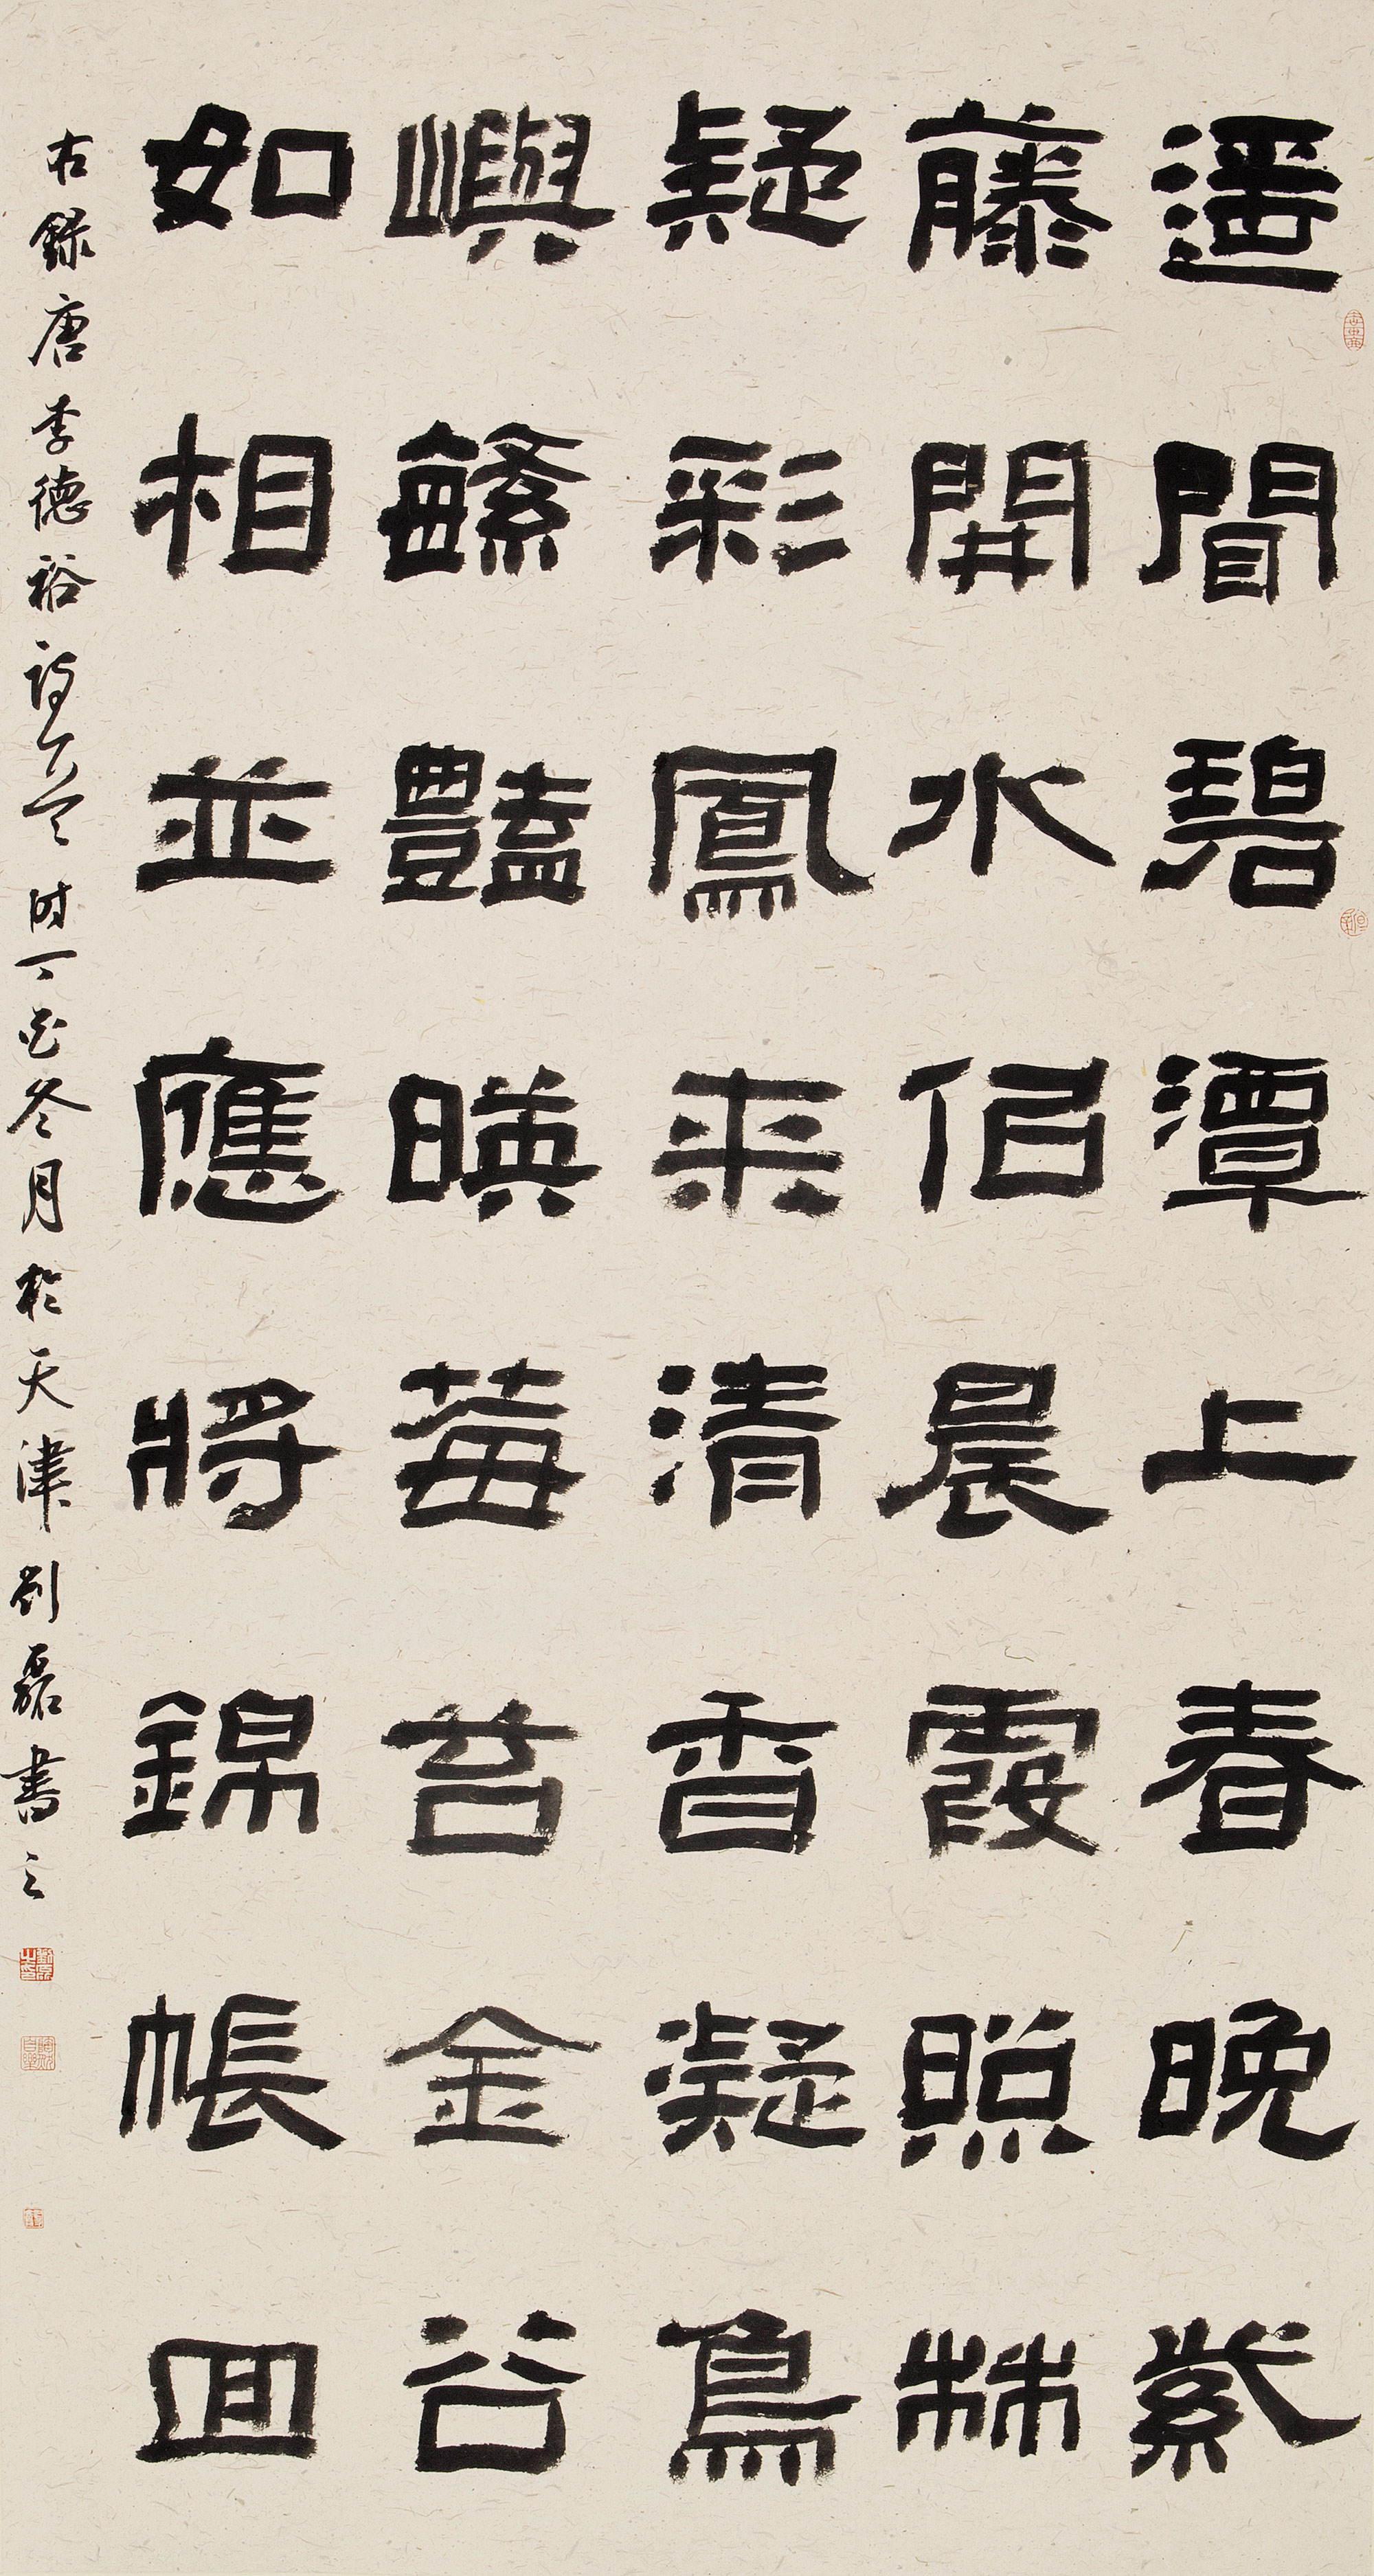 遥聞碧潭上春晚紫
藤開水似晨霞照林
疑彩鳳来清香凝島
嶼繁豔暎莓苔金谷
如相並應將錦帳回
右錄唐李德裕詩時丁酉冬月於天津劉磊書之